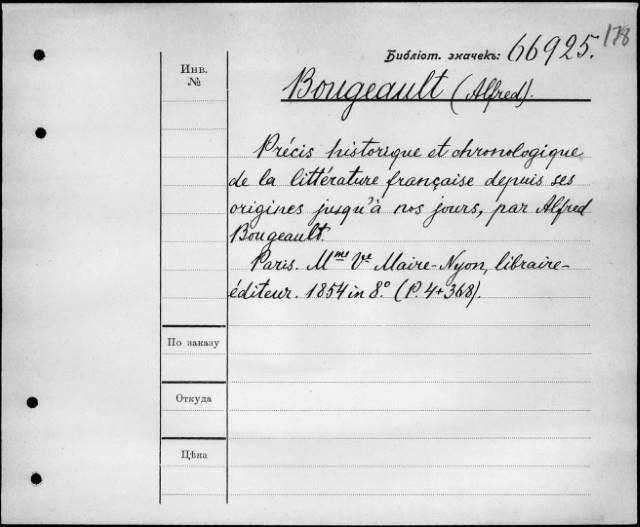 178
Библіот. значекъ: 66925.
Инв.
№
Bougeault (Alfred).
Précis historique et chronologique
de la littérature française depuis ses
origines jusqu'à nos jours, par Alfred
Bougeault.
Paris. Mme Ve Maire-Nyon, libraire-
éditeur. 1854 in 8º. (P. 4+368).
По заказу
Откуда
Цѣна